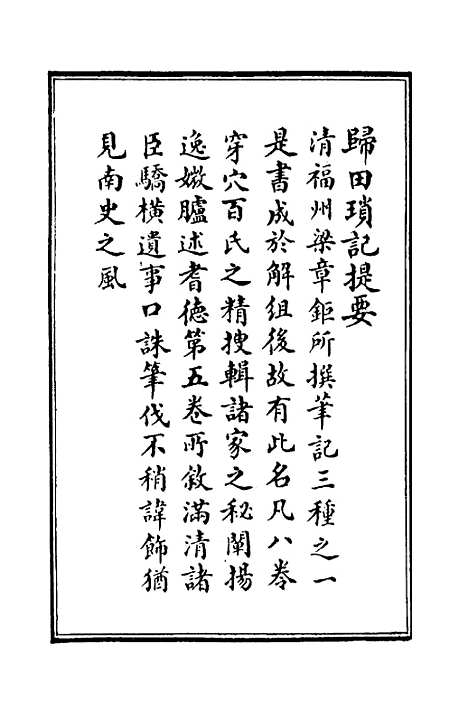 歸田瑣記提要
清福州梁章鉅所撰筆記三種之一
是書成於解組後故有此名凡八卷
穿穴百氏之精搜輯諸家之秘闡揚
逸媺臚述耆德第五卷所敘滿清諸
臣驕橫遺事口誅筆伐不稍諱飾猶
見南史之風